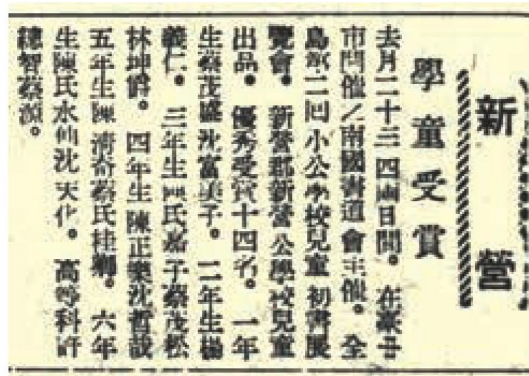 新營
學童受賞
去月二十三四兩日間。在臺中
市開催ノ南國書道會主催。全
島第二回小公學校兒童初書展
覽會。新營郡新營公學校兒童
出品。優秀受賞十四名。一年
生蔡茂盛沈富美子。二年生楊
義仁。三年生陳氏嘉子蔡茂松
林坤爵。四年生陳正樂沈哲哉
五年生陳清奇蔡氏桂鄉。六年
生陳氏水仙沈天化。高等科許
總智蔡源。